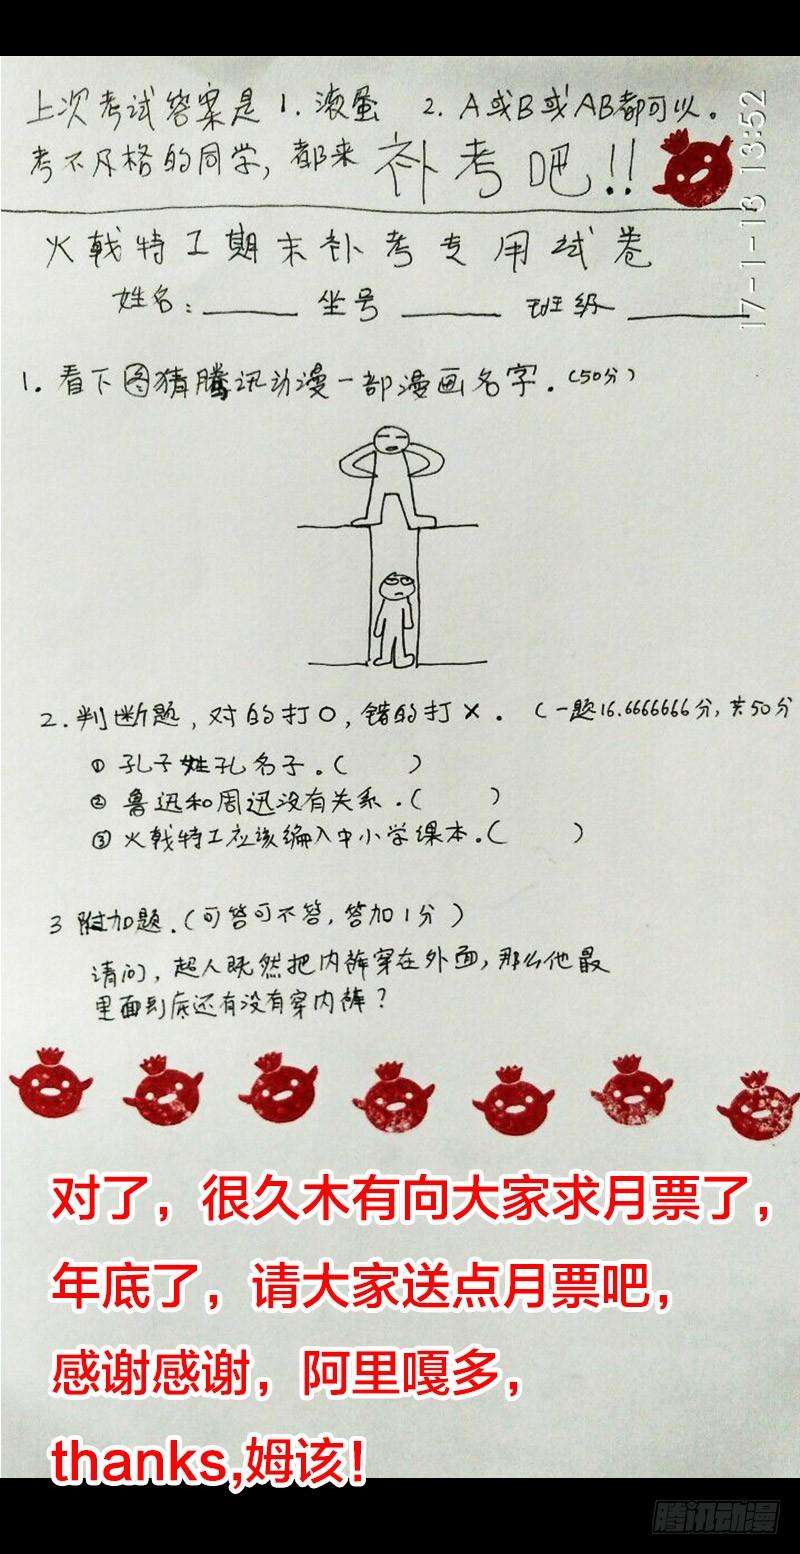 上次考试答案是 1. 滚蛋 2. A或B或AB都可以。
考不及格的同学, 都来 补考吧!!
17-1-13 13:52
火戟特工期末补考专用试卷
姓名: 坐号 班级
1. 看下图猜腾讯动漫一部漫画名字. (50分)
2. 判断题, 对的打O, 错的打×. (一题16.6666666分, 共50分
① 孔子姓孔名子. ( )
② 鲁迅和周迅没有关系. ( )
③ 火戟特工应该编入中小学课本. ( )
3 附加题. (可答可不答, 答加1分)
请问, 超人既然把内裤穿在外面, 那么他最
里面到底还有没有穿内裤?
对了，很久木有向大家求月票了，
年底了，请大家送点月票吧，
感谢感谢，阿里嘎多，
thanks,姆该！
腾讯动漫